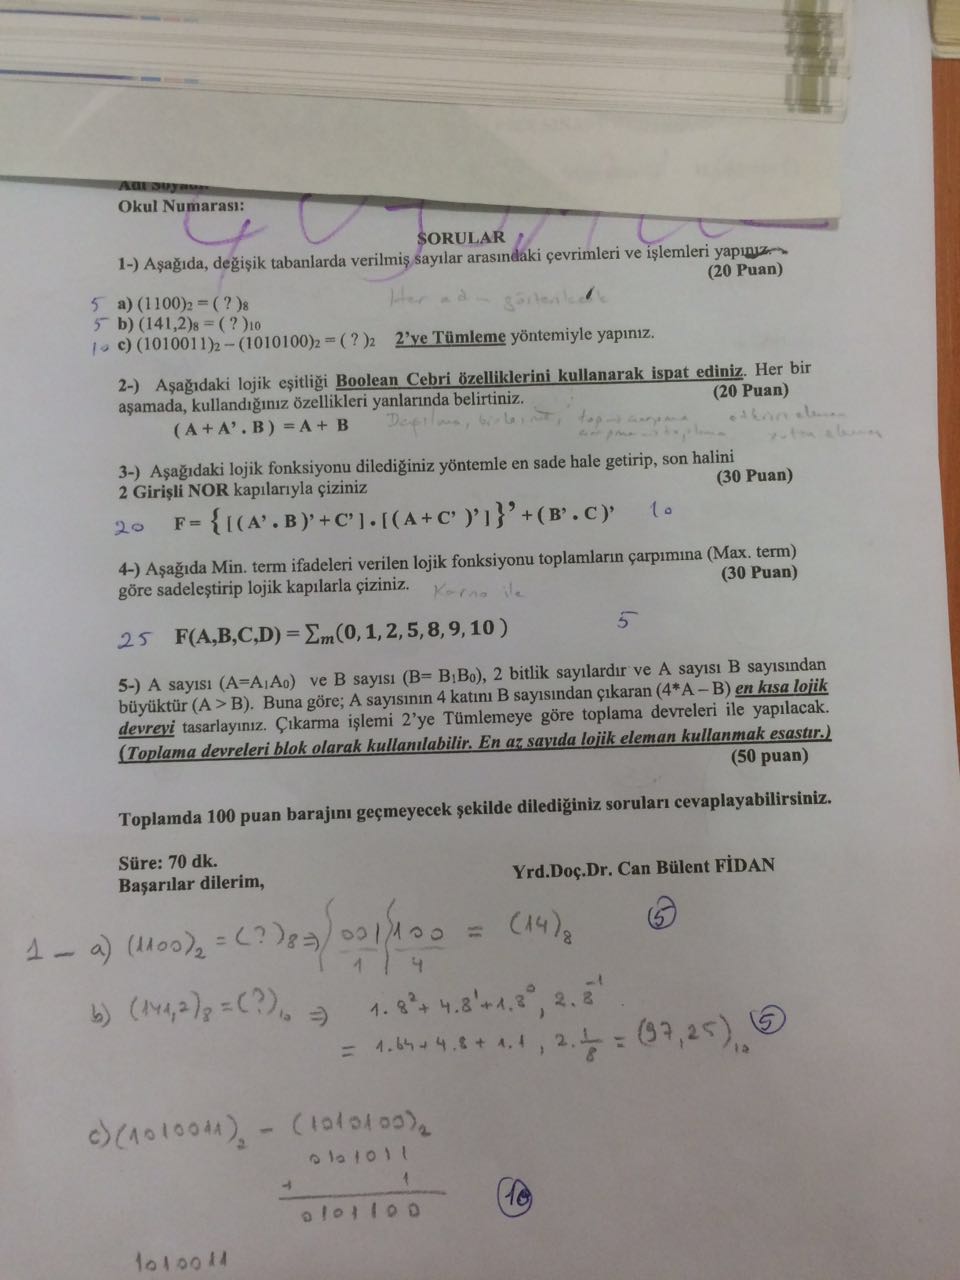 Adı Soyadı:
Okul Numarası:
SORULAR
1-) Aşağıda, değişik tabanlarda verilmiş sayılar arasındaki çevrimleri ve işlemleri yapınız.
(20 Puan)
Her
5 a) (1100)₂ = ( ? )₈
5 b) (141,2)₈ = ( ? )₁₀
10 c) (1010011)₂ – (1010100)₂ = ( ? )₂ 2’ye Tümleme yöntemiyle yapınız.
2-) Aşağıdaki lojik eşitliği Boolean Cebri özelliklerini kullanarak ispat ediniz. Her bir
aşamada, kullandığınız özellikleri yanlarında belirtiniz. (20 Puan)
( A + A’ . B ) = A + B
3-) Aşağıdaki lojik fonksiyonu dilediğiniz yöntemle en sade hale getirip, son halini
2 Girişli NOR kapılarıyla çiziniz (30 Puan)
20 F = { [ ( A’ . B )’ + C’ ] . [ ( A + C’ )’ ] }’ + ( B’ . C )’ 10
4-) Aşağıda Min. term ifadeleri verilen lojik fonksiyonu toplamların çarpımına (Max. term)
göre sadeleştirip lojik kapılarla çiziniz. Karno ile (30 Puan)
25 F(A,B,C,D) = ∑m(0, 1, 2, 5, 8, 9, 10 ) 5
5-) A sayısı (A=A₁A₀) ve B sayısı (B= B₁B₀), 2 bitlik sayılardır ve A sayısı B sayısından
büyüktür (A > B). Buna göre; A sayısının 4 katını B sayısından çıkaran (4*A – B) en kısa lojik
devreyi tasarlayınız. Çıkarma işlemi 2’ye Tümlemeye göre toplama devreleri ile yapılacak.
(Toplama devreleri blok olarak kullanılabilir. En az sayıda lojik eleman kullanmak esastır.)
(50 puan)
Toplamda 100 puan barajını geçmeyecek şekilde dilediğiniz soruları cevaplayabilirsiniz.
Süre: 70 dk.
Başarılar dilerim,
Yrd.Doç.Dr. Can Bülent FİDAN
1 – a) (1100)₂ = (?)₈ ⇒ 001 100 = (14)₈ 5
1 4
b) (141,2)₈ = (?)₁₀ ⇒ 1.8² + 4.8¹ + 1.8⁰, 2.8⁻¹
= 1.64 + 4.8 + 1.1, 2.1/8 = (97,25)₁₀ 5
c) (1010011)₂ – (1010100)₂
0101011
+ 1
0101100 10
1010011